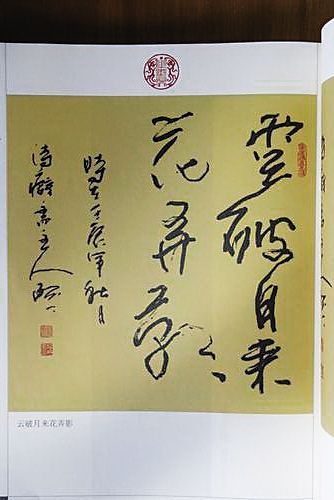 雲破月来
花弄影
時在壬辰年秋月
主人
云破月来花弄影